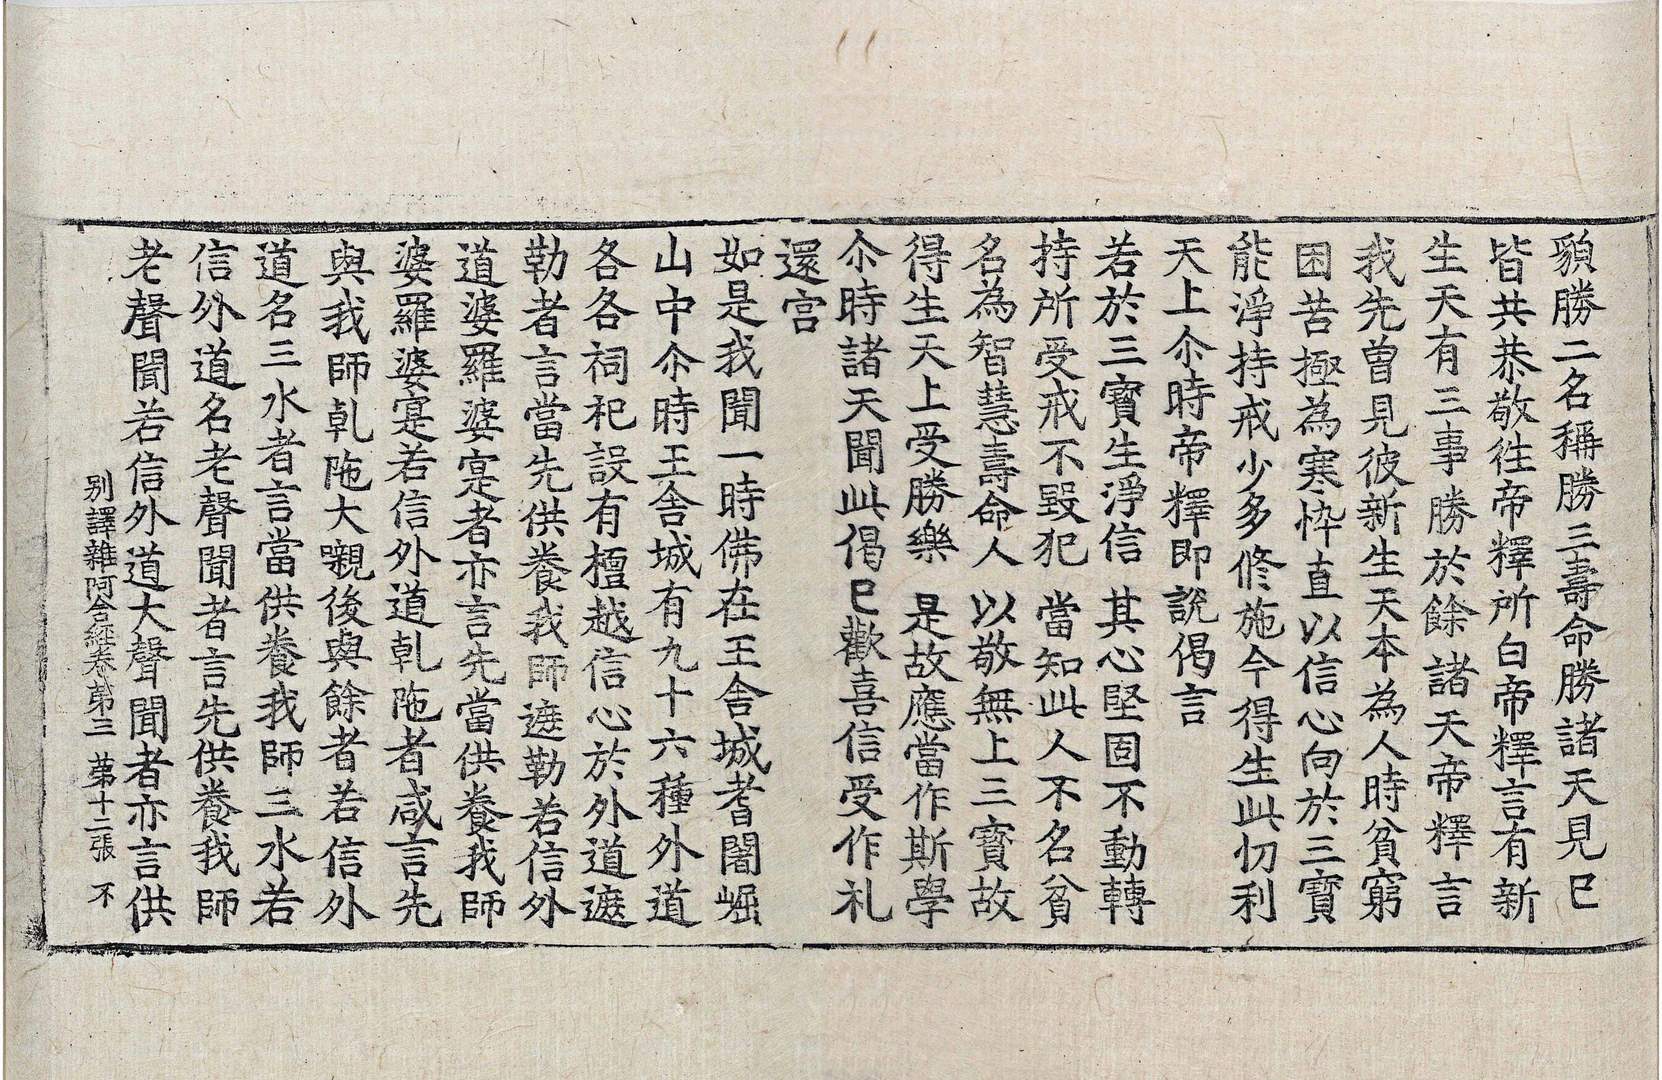 貌勝二名稱勝三壽命勝諸天見已
皆共恭敬往帝釋所白帝釋言有新
生天有三事勝於餘諸天帝釋言
我先曾見彼新生天本為人時貧窮
困苦極為寒悴直以信心向於三寶
能淨持戒少多修施今得生此忉利
天上尒時帝釋即説偈言
若於三寶生淨信 其心堅固不動轉
持所受戒不毀犯 當知此人不名貧
名為智慧壽命人 以敬無上三寶故
得生天上受勝樂 是故應當作斯學
尒時諸天聞此偈已歡喜信受作礼
還宮
如是我聞一時佛在王舍城耆闍崛
山中尒時王舍城有九十六種外道
各各祠祀設有檀越信心於外道遮
勒者言當先供養我師遮勒若信外
道婆羅婆寔者亦言先當供養我師
婆羅婆寔若信外道乹陁者咸言先
與我師乹陁大嚫後與餘者若信外
道名三水者言當供養我師三水若
信外道名老聲聞者言先供養我師
老聲聞若信外道大聲聞者亦言供
別譯雜阿含經卷第三 第十二張 不